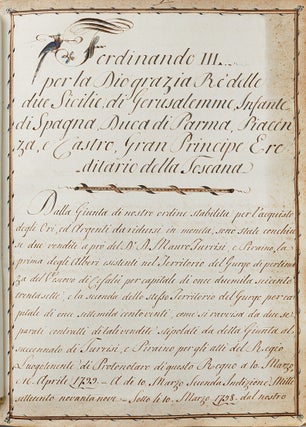 Ferdinando III.
per la Dio grazia Rè delle
due Sicilie, di Gerusalemme, Infante
di Spagna, Duca di Parma, Piacen
za, e Castro, Gran Principe Ere
ditario della Toscana
Dalla Giunta di nostro ordine stabilita per l'acquisto
degli Ori, ed Argenti da ridursi in moneta, sono state conchiu
se due vendite a pro del Dr. D. Mauro Turrisi, e Peraino, la
prima degli Alberi esistenti nel Territorio del Gurgo di pertinen
za del Vescovo di Cefalù per capitale di onze duemila seicento
trenta sette, e la seconda dello stesso Territorio del Gurgo, per ca
pitale di onze settemila cento venti, come si ravvisa da due se
parati contratti di tali vendite stipolate da detta Giunta al
succennato di Turrisi, e Peraino per gli atti del Regio
Luogotenente di Protonotaro di questo Regno a 10. Marzo,
11. Aprile 1799. - A dì 10. Marzo Seconda Indizione Mille
settecento novanta nove - Sotto li 10. Marzo 1798. dal nostro